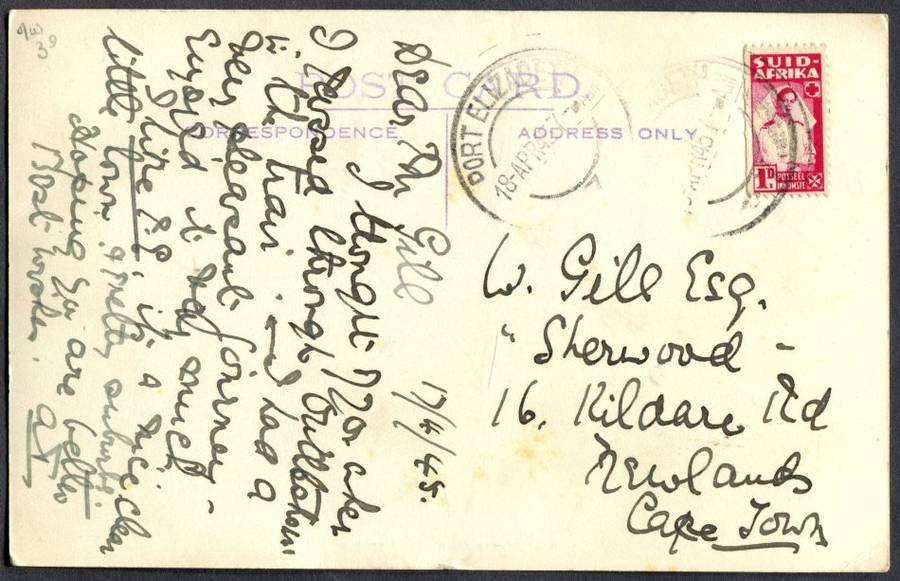 POST CARD
CORRESPONDENCE.
ADDRESS ONLY.
Dear Mr Gill 17/4/45.
I thought of you when
I passed through Oudtshoorn
in the train. I had a
very pleasant journey -
Enjoyed it very much.
I like P.E. it's a nice clean
little town & pretty suburbs.
Hoping you are better
Best wishes.
PORT ELIZABETH
18-APR 45
SUID-AFRIKA
1D
POSSEEL
INKOMSTE
W. Gill Esq.
"Sherwood -
16, Kildare Rd
Newlands
Cape Town